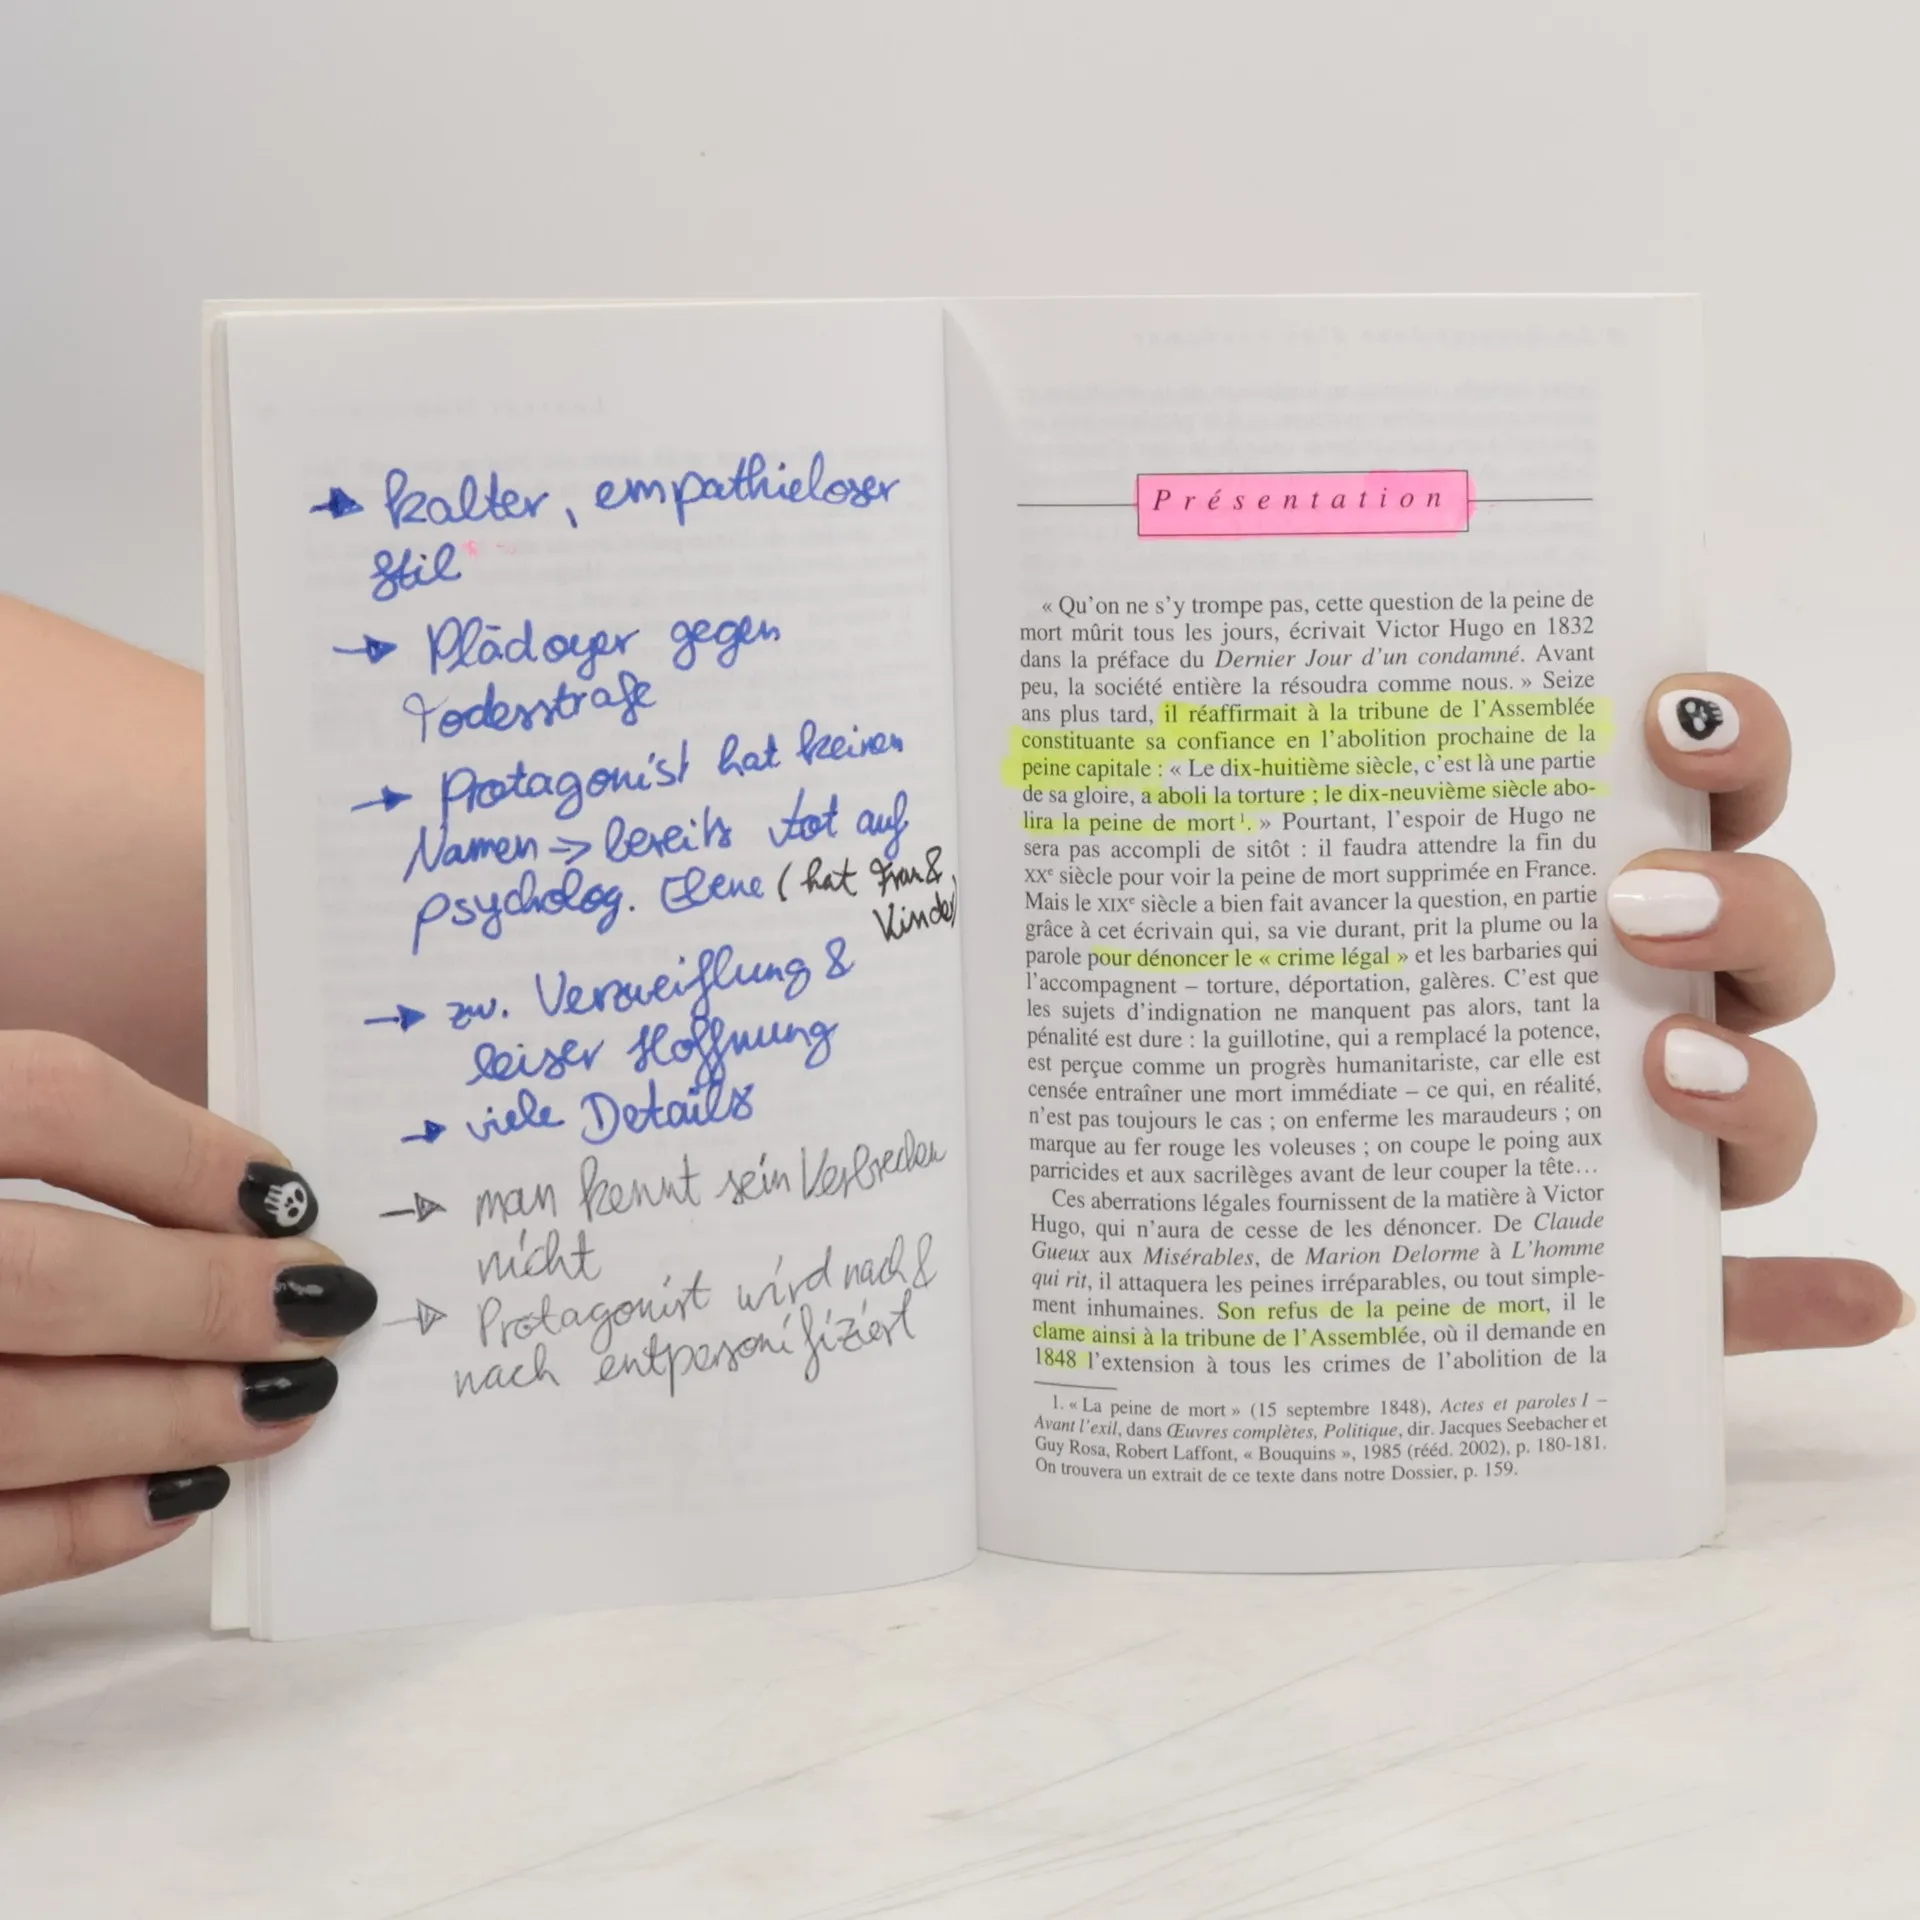 → kalter, empathieloser
Stil
→ Plädoyer gegen
Todesstrafe
→ Protagonist hat keinen
Namen => bereits tot auf
psycholog. Ebene (hat Frau &
Kinder)
→ zw. Verzweiflung &
leiser Hoffnung
→ viele Details
→ man kennt sein Verbrechen
nicht
→ Protagonist wird nach &
nach entpersonifiziert
Présentation
« Qu'on ne s'y trompe pas, cette question de la peine de
mort mûrit tous les jours, écrivait Victor Hugo en 1832
dans la préface du Dernier Jour d'un condamné. Avant
peu, la société entière la résoudra comme nous. » Seize
ans plus tard, il réaffirmait à la tribune de l'Assemblée
constituante sa confiance en l'abolition prochaine de la
peine capitale : « Le dix-huitième siècle, c'est là une partie
de sa gloire, a aboli la torture ; le dix-neuvième siècle abo-
lira la peine de mort¹. » Pourtant, l'espoir de Hugo ne
sera pas accompli de sitôt : il faudra attendre la fin du
XXe siècle pour voir la peine de mort supprimée en France.
Mais le XIXe siècle a bien fait avancer la question, en partie
grâce à cet écrivain qui, sa vie durant, prit la plume ou la
parole pour dénoncer le « crime légal » et les barbaries qui
l'accompagnent – torture, déportation, galères. C'est que
les sujets d'indignation ne manquent pas alors, tant la
pénalité est dure : la guillotine, qui a remplacé la potence,
est perçue comme un progrès humanitariste, car elle est
censée entraîner une mort immédiate – ce qui, en réalité,
n'est pas toujours le cas ; on enferme les maraudeurs ; on
marque au fer rouge les voleuses ; on coupe le poing aux
parricides et aux sacrilèges avant de leur couper la tête…
Ces aberrations légales fournissent de la matière à Victor
Hugo, qui n'aura de cesse de les dénoncer. De Claude
Gueux aux Misérables, de Marion Delorme à L'homme
qui rit, il attaquera les peines irréparables, ou tout simple-
ment inhumaines. Son refus de la peine de mort, il le
clame ainsi à la tribune de l'Assemblée, où il demande en
1848 l'extension à tous les crimes de l'abolition de la
1. « La peine de mort » (15 septembre 1848), Actes et paroles I –
Avant l'exil, dans Œuvres complètes, Politique, dir. Jacques Seebacher et
Guy Rosa, Robert Laffont, « Bouquins », 1985 (rééd. 2002), p. 180-181.
On trouvera un extrait de ce texte dans notre Dossier, p. 159.